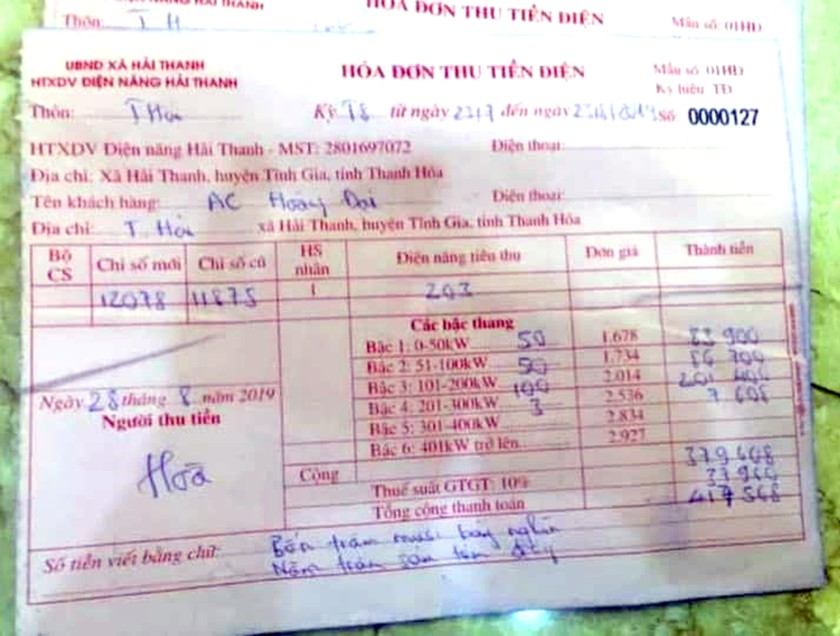 HÓA ĐƠN THU TIỀN ĐIỆN
Mẫu số: 01HĐ
Thôn: T H
UBND XÃ HẢI THANH
HTXDV ĐIỆN NĂNG HẢI THANH
HÓA ĐƠN THU TIỀN ĐIỆN
Mẫu số: 01HĐ
Ký hiệu: TĐ
Thôn: T Hải
Kỳ T8 từ ngày 23/7 đến ngày Số 0000127
HTXDV Điện năng Hải Thanh - MST: 2801697072 Điện thoại:
Địa chỉ: Xã Hải Thanh, huyện Tĩnh Gia, tỉnh Thanh Hóa
Tên khách hàng: AC Hoàng Đại Điện thoại:
Địa chỉ: T. Hải xã Hải Thanh, huyện Tĩnh Gia, tỉnh Thanh Hóa
Bộ CS Chỉ số mới Chỉ số cũ HS nhân Điện năng tiêu thụ Đơn giá Thành tiền
12078 11875 1 203
Các bậc thang
Bậc 1: 0-50kW 50 1.678 83 900
Bậc 2: 51-100kW 50 1.734 86 700
Bậc 3: 101-200kW 100 2.014 201 400
Bậc 4: 201-300kW 3 2.536 7 608
Bậc 5: 301-400kW 2.834
Bậc 6: 401kW trở lên 2.927
Ngày 28 tháng 8 năm 2019
Người thu tiền
Hoà
Cộng 379 608
Thuế suất GTGT: 10% 37 960
Tổng cộng thanh toán 417 568
Số tiền viết bằng chữ: Bốn trăm mười bảy nghìn
Năm trăm sáu tám đồng